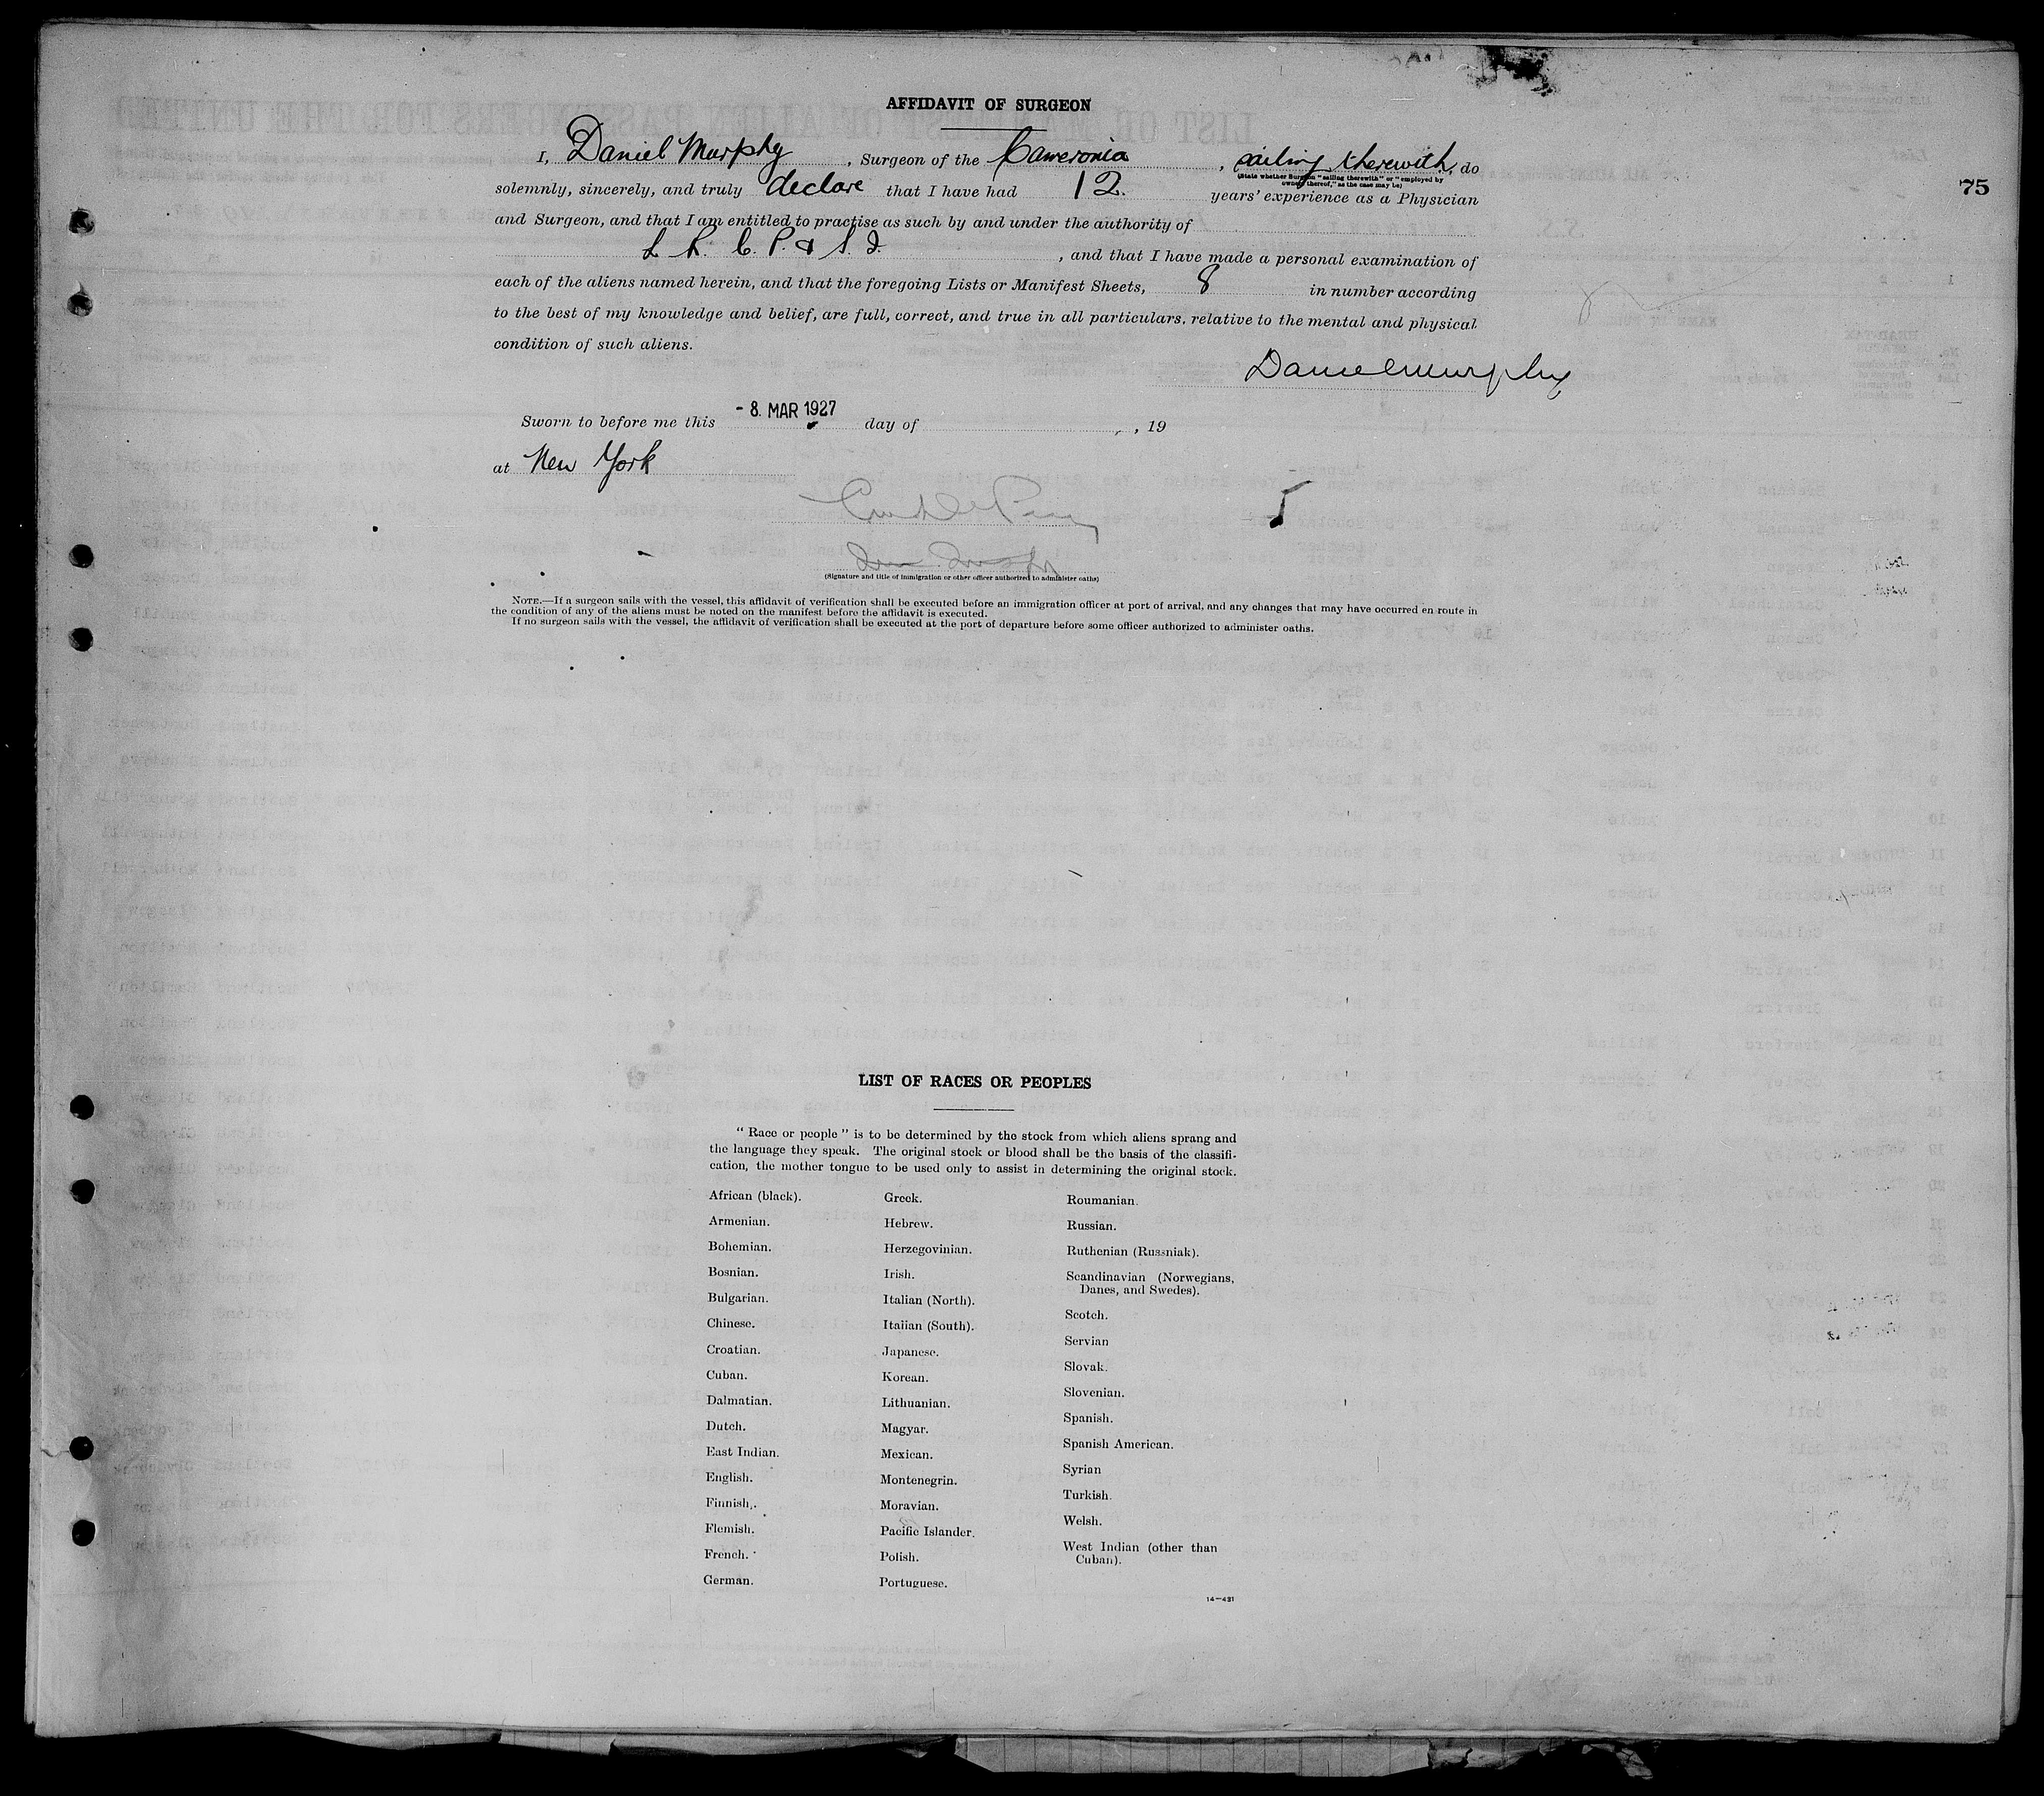 AFFIDAVIT OF SURGEON
75
I, Daniel Murphy, Surgeon of the Cameronia, sailing therewith, do
(State whether Surgeon "sailing therewith" or "employed by
owners thereof," as the case may be)
solemnly, sincerely, and truly declare that I have had 12. years' experience as a Physician
and Surgeon, and that I am entitled to practise as such by and under the authority of
L. R. C. P. & S. I., and that I have made a personal examination of
each of the aliens named herein, and that the foregoing Lists or Manifest Sheets, 8 in number according
to the best of my knowledge and belief, are full, correct, and true in all particulars, relative to the mental and physical
condition of such aliens.
Daniel Murphy
Sworn to before me this - 8. MAR 1927 day of , 19
at New York
(Signature and title of immigration or other officer authorized to administer oaths)
NOTE.—If a surgeon sails with the vessel, this affidavit of verification shall be executed before an immigration officer at port of arrival, and any changes that may have occurred en route in
the condition of any of the aliens must be noted on the manifest before the affidavit is executed.
If no surgeon sails with the vessel, the affidavit of verification shall be executed at the port of departure before some officer authorized to administer oaths.
LIST OF RACES OR PEOPLES
" Race or people " is to be determined by the stock from which aliens sprang and
the language they speak. The original stock or blood shall be the basis of the classifi-
cation, the mother tongue to be used only to assist in determining the original stock.
African (black).
Armenian.
Bohemian.
Bosnian.
Bulgarian.
Chinese.
Croatian.
Cuban.
Dalmatian.
Dutch.
East Indian.
English.
Finnish.
Flemish.
French.
German.
Greek.
Hebrew.
Herzegovinian.
Irish.
Italian (North).
Italian (South).
Japanese.
Korean.
Lithuanian.
Magyar.
Mexican.
Montenegrin.
Moravian.
Pacific Islander.
Polish.
Portuguese.
Roumanian.
Russian.
Ruthenian (Russniak).
Scandinavian (Norwegians,
Danes, and Swedes).
Scotch.
Servian
Slovak.
Slovenian.
Spanish.
Spanish American.
Syrian
Turkish.
Welsh.
West Indian (other than
Cuban).
14—431